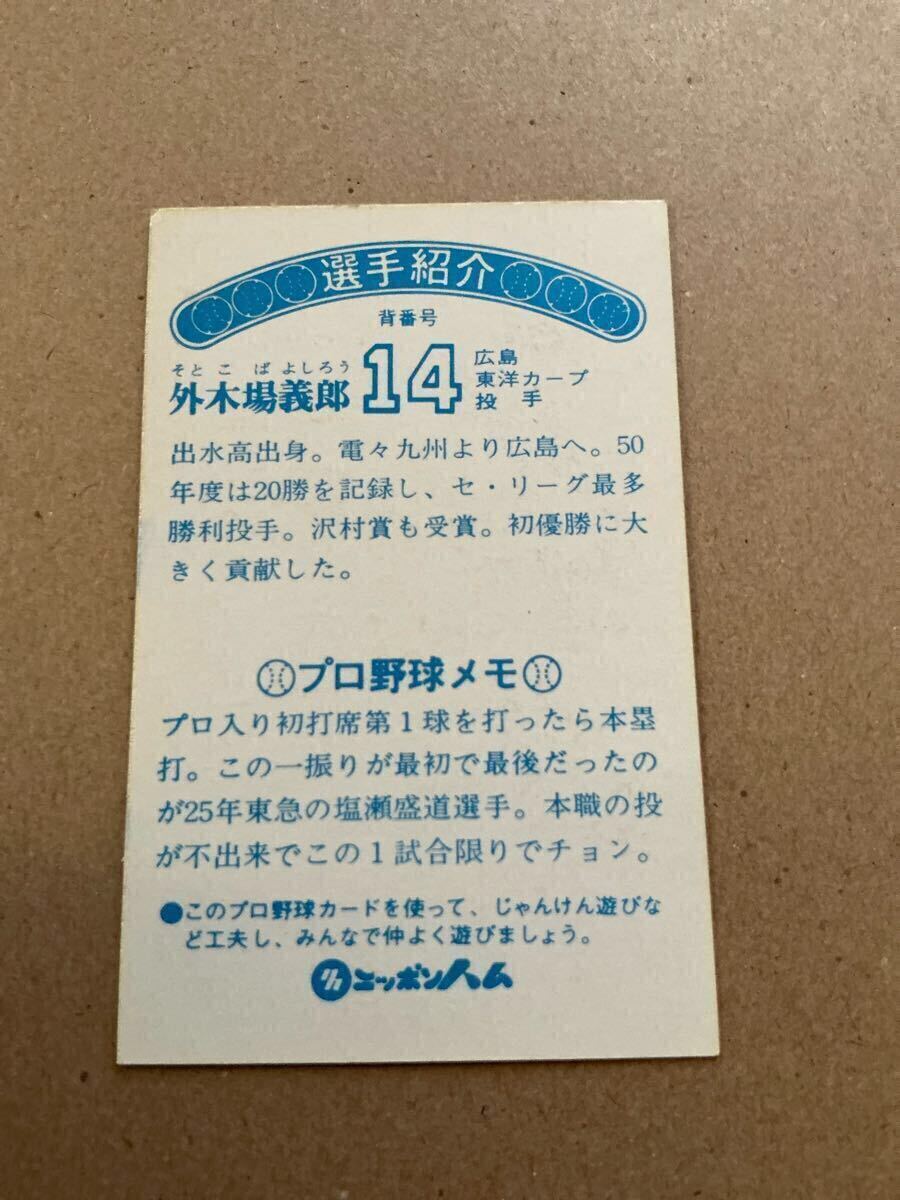 選手紹介
背番号
そとこばよしろう
外木場義郎
14
広島
東洋カープ
投手
出水高出身。電々九州より広島へ。50
年度は20勝を記録し、セ・リーグ最多
勝利投手。沢村賞も受賞。初優勝に大
きく貢献した。
プロ野球メモ
プロ入り初打席第1球を打ったら本塁
打。この一振りが最初で最後だったの
が25年東急の塩瀬盛道選手。本職の投
が不出来でこの1試合限りでチョン。
●このプロ野球カードを使って、じゃんけん遊びな
ど工夫し、みんなで仲よく遊びましょう。
ニッポンハム